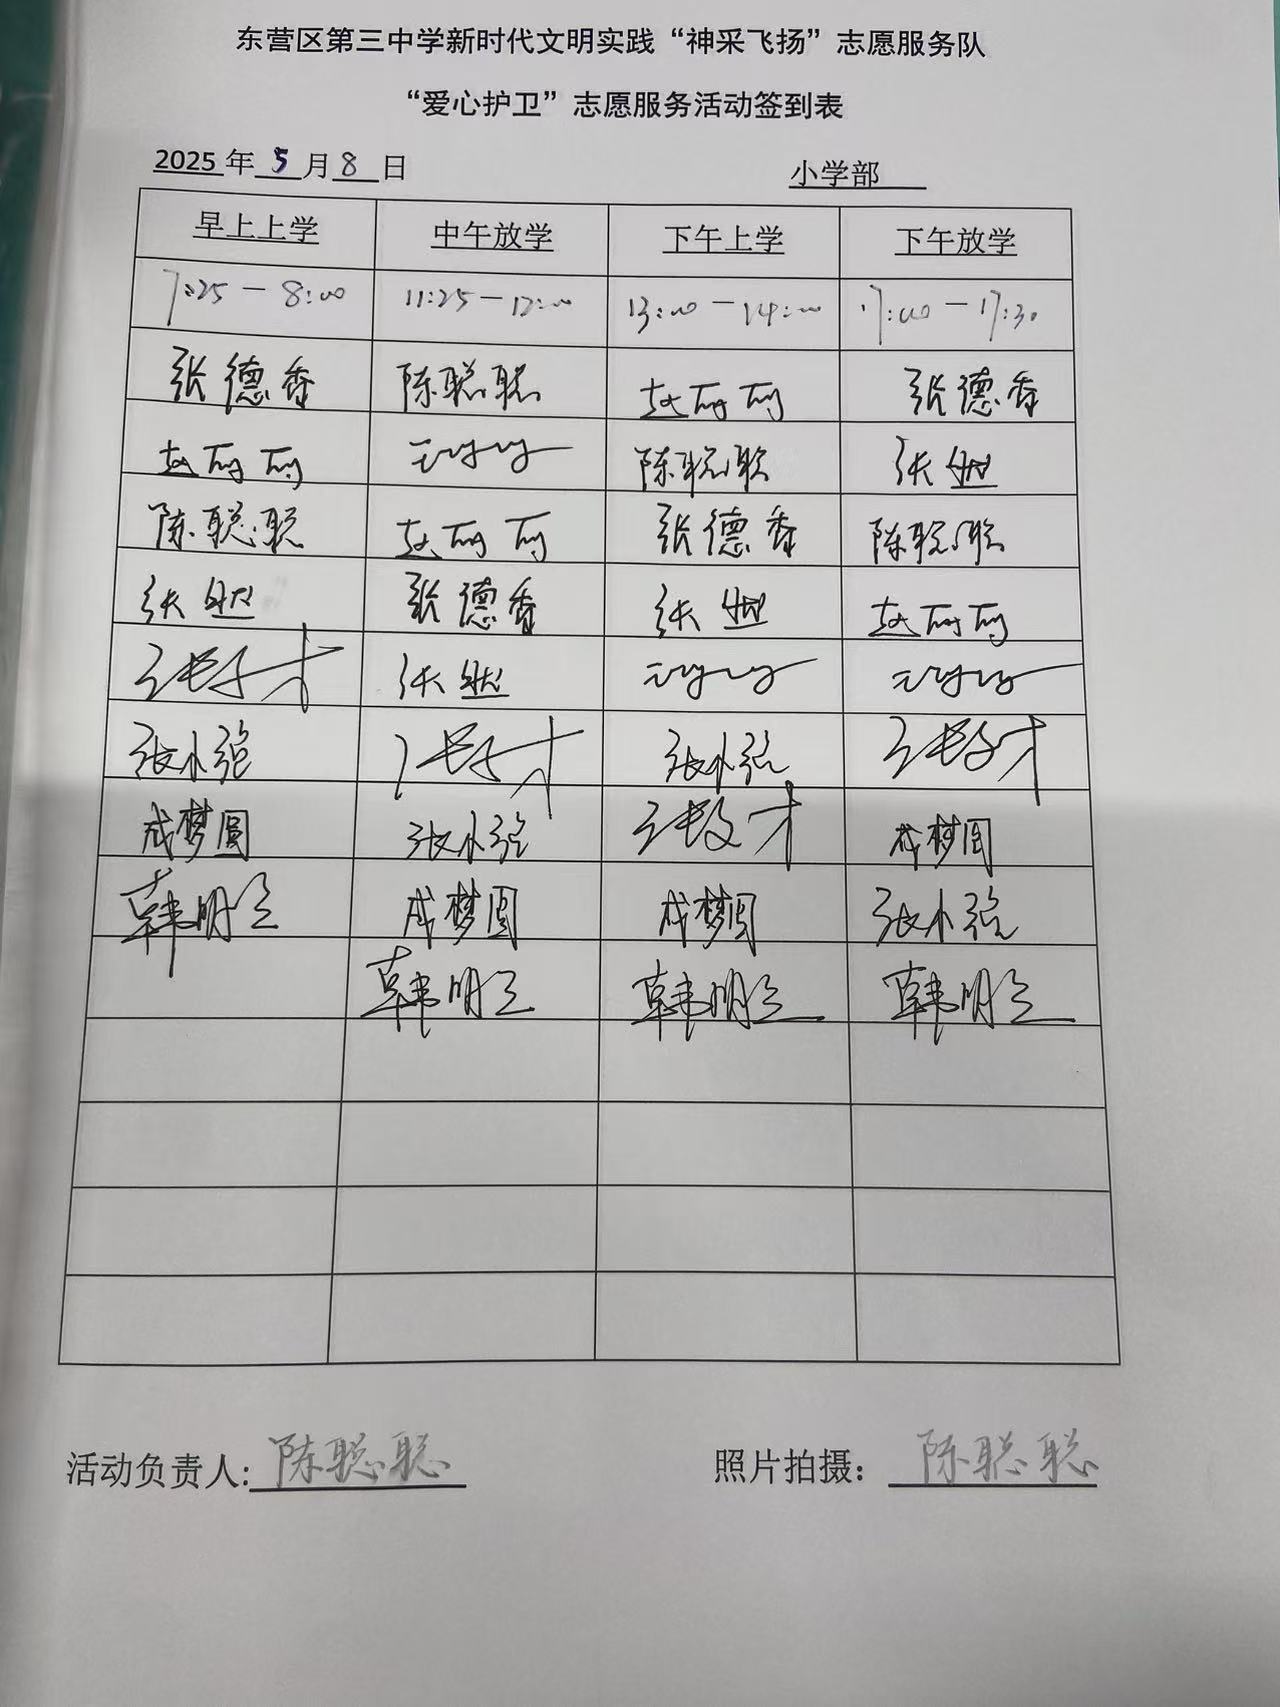 东营区第三中学新时代文明实践“神采飞扬”志愿服务队
“爱心护卫”志愿服务活动签到表
2025 年 5 月 8 日 小学部
早上上学 中午放学 下午上学 下午放学
7:25 — 8:00 11:25 — 12:00 13:00 — 14:00 17:00 — 17:30
张德香 陈聪聪 赵丽丽 张德香
赵丽丽 陈聪聪 张燃
陈聪聪 赵丽丽 张德香 陈聪聪
张燃 张德香 张燃 赵丽丽
张燃
张小强 张小强
成梦圆 张小强 成梦圆
韩明立 成梦圆 成梦圆 张小强
韩明立 韩明立 韩明立
活动负责人: 陈聪聪 照片拍摄: 陈聪聪